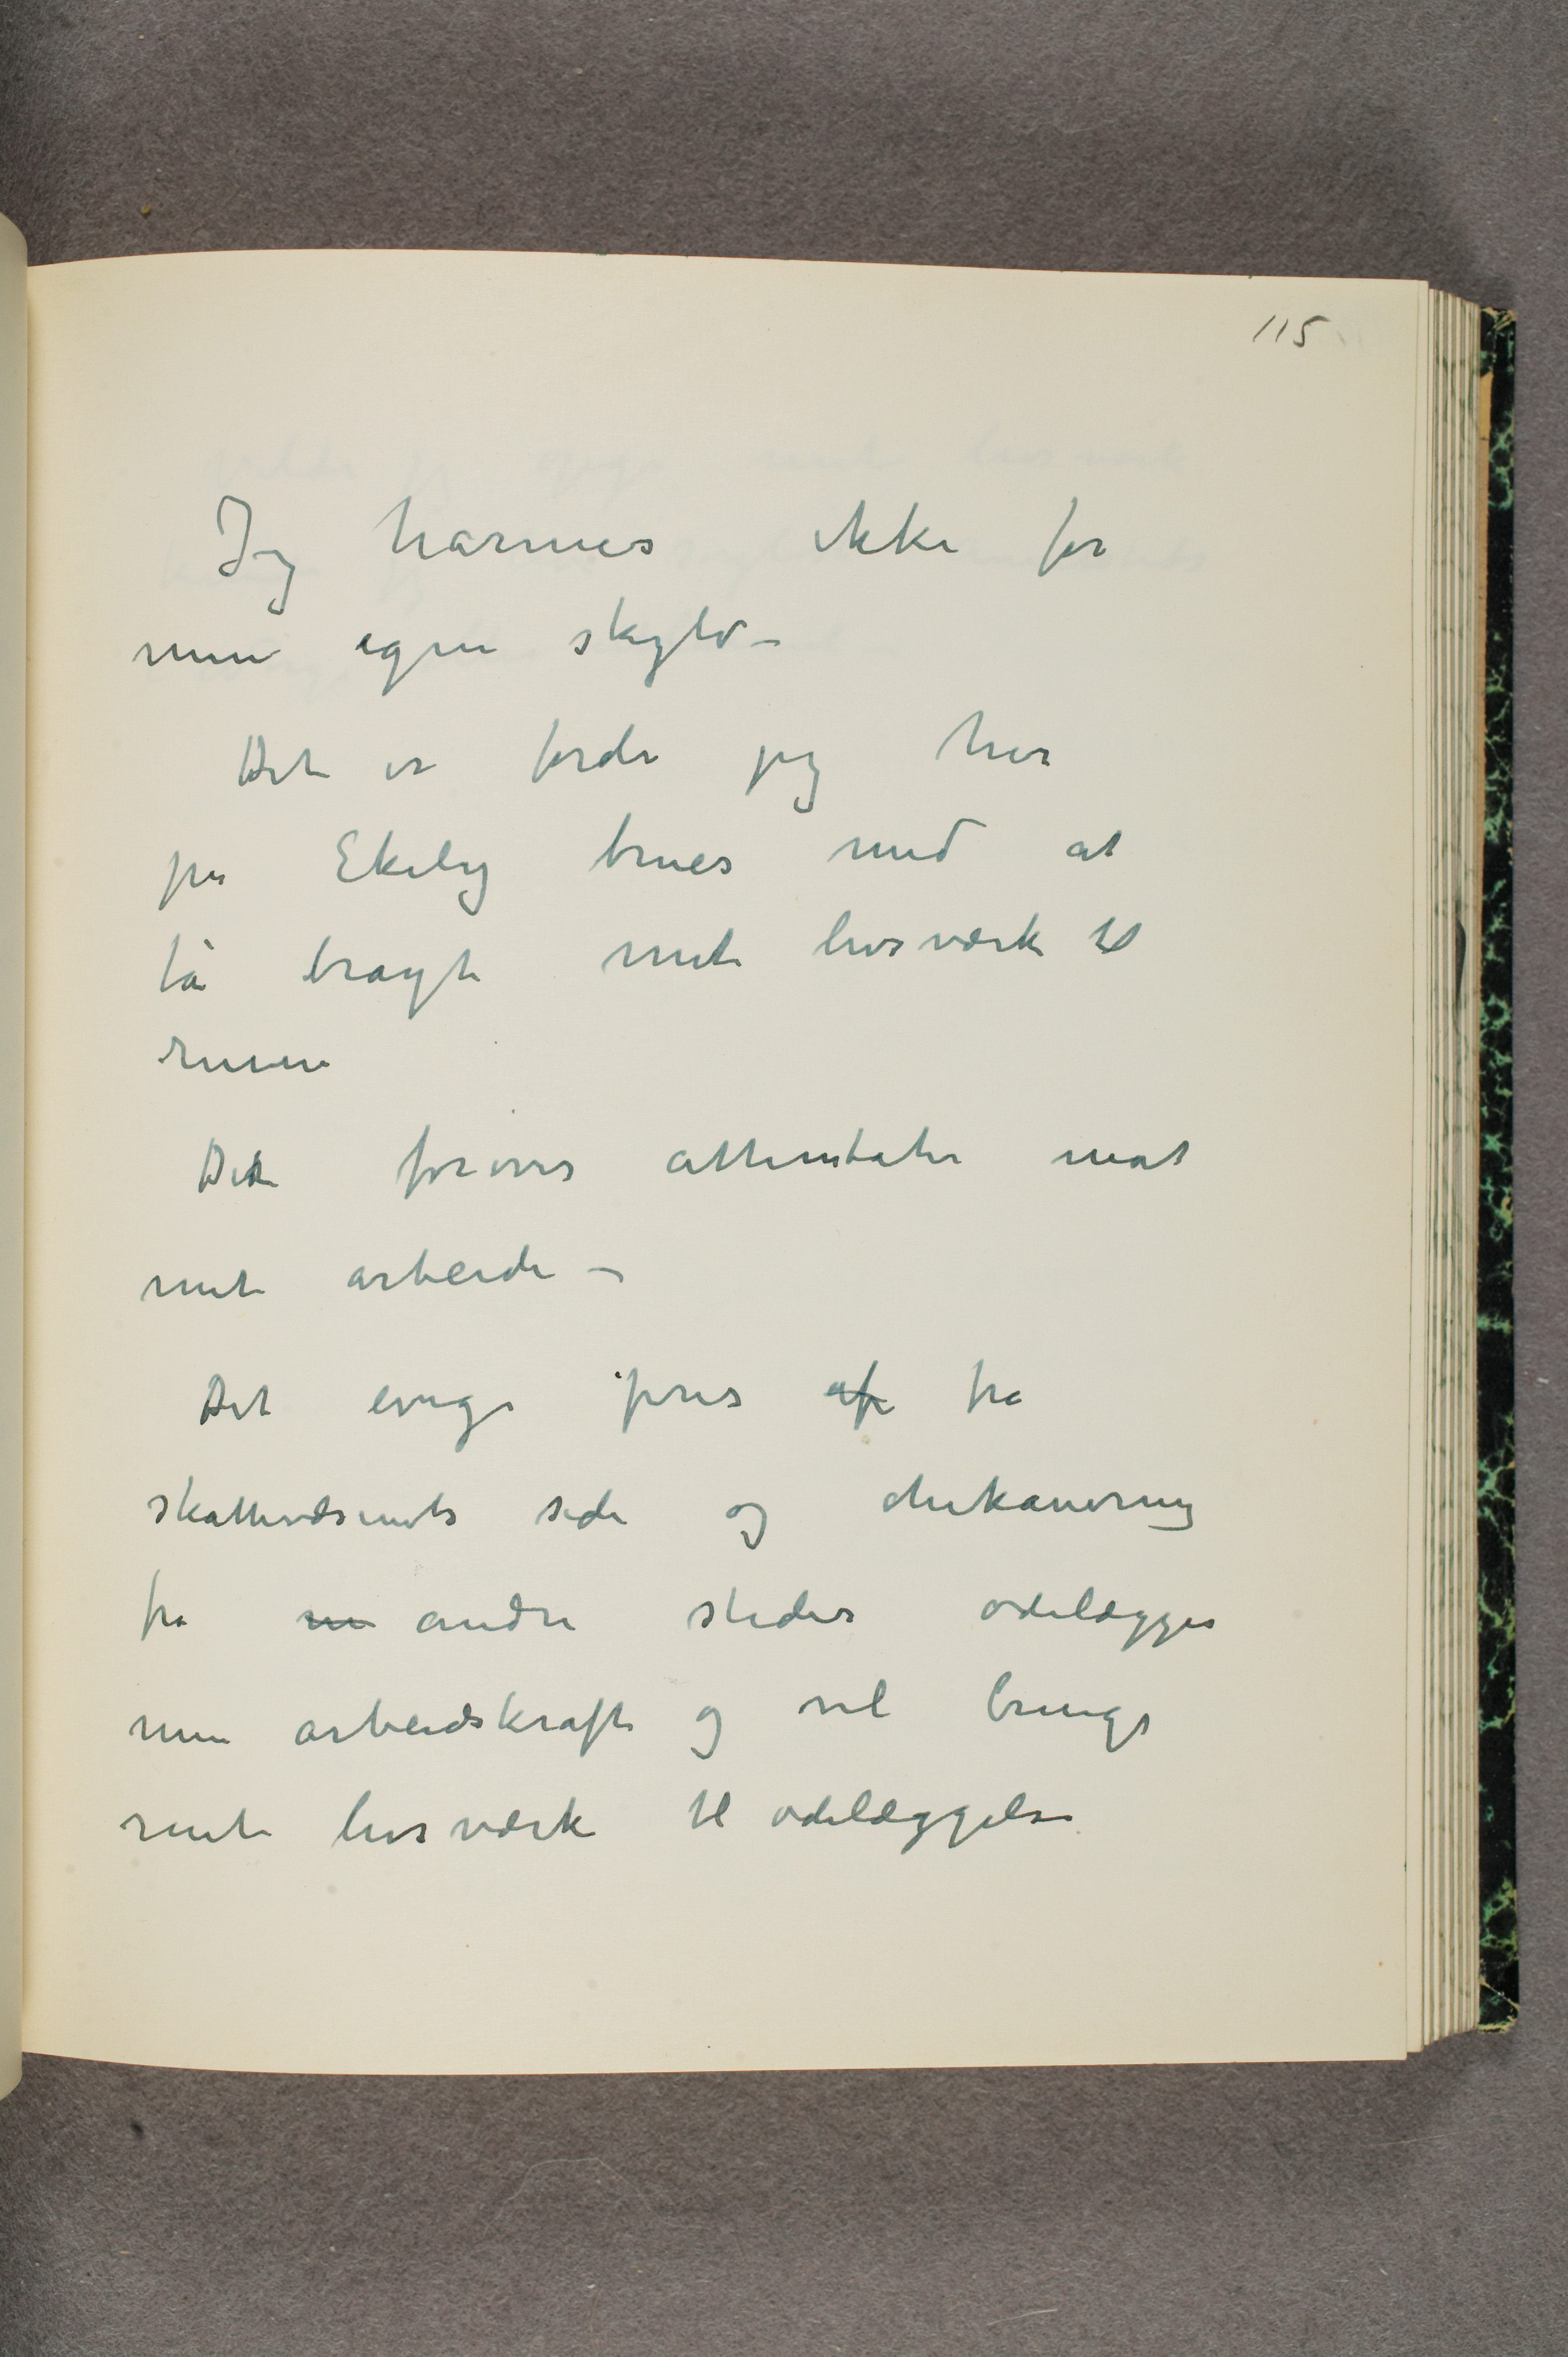 115
Jeg harmes ikke for
min egen skyld –
Det er fordi jeg her
på Ekely trues med at
få bragt mit livsværk til
ruin
Det foröves attentater mot
mit arbeide –
Det evige pres af fra
skattevæsenets side og chikanering
fra m andre steder ödelægger
min arbeidskraft og vil bringe
mit livsværk til ödelæggelse